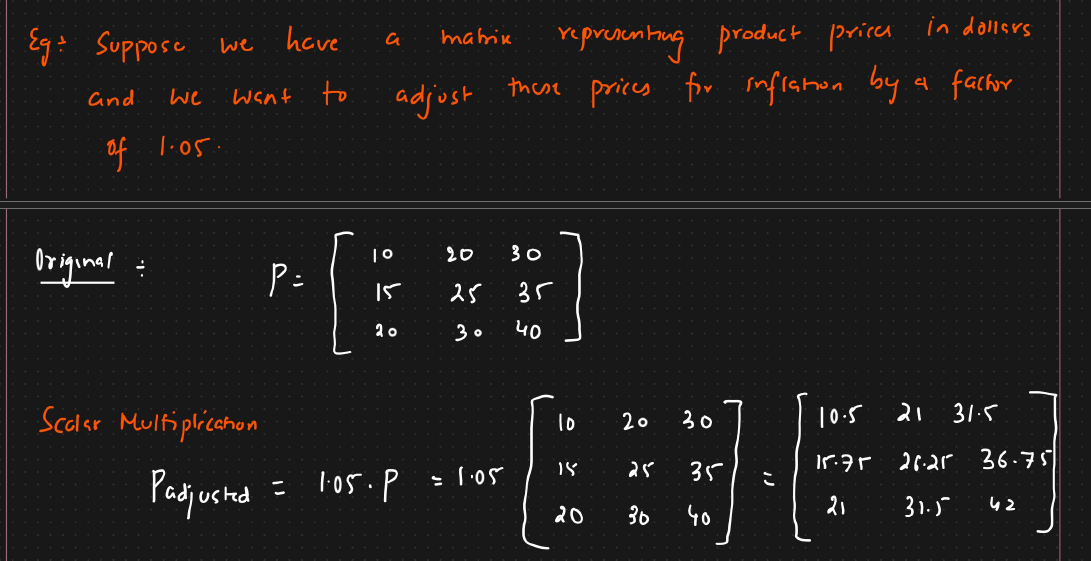 Eg: Suppose we have a matrix representing product prices in dollars
and we want to adjust these prices for inflation by a factor
of 1.05.
Original :
P = [ 10 20 30
15 25 35
20 30 40 ]
Scalar Multiplication
Padjusted = 1.05 . P = 1.05 [ 10 20 30 = [ 10.5 21 31.5
15 25 35 15.75 26.25 36.75
20 30 40 ] 21 31.5 42 ]